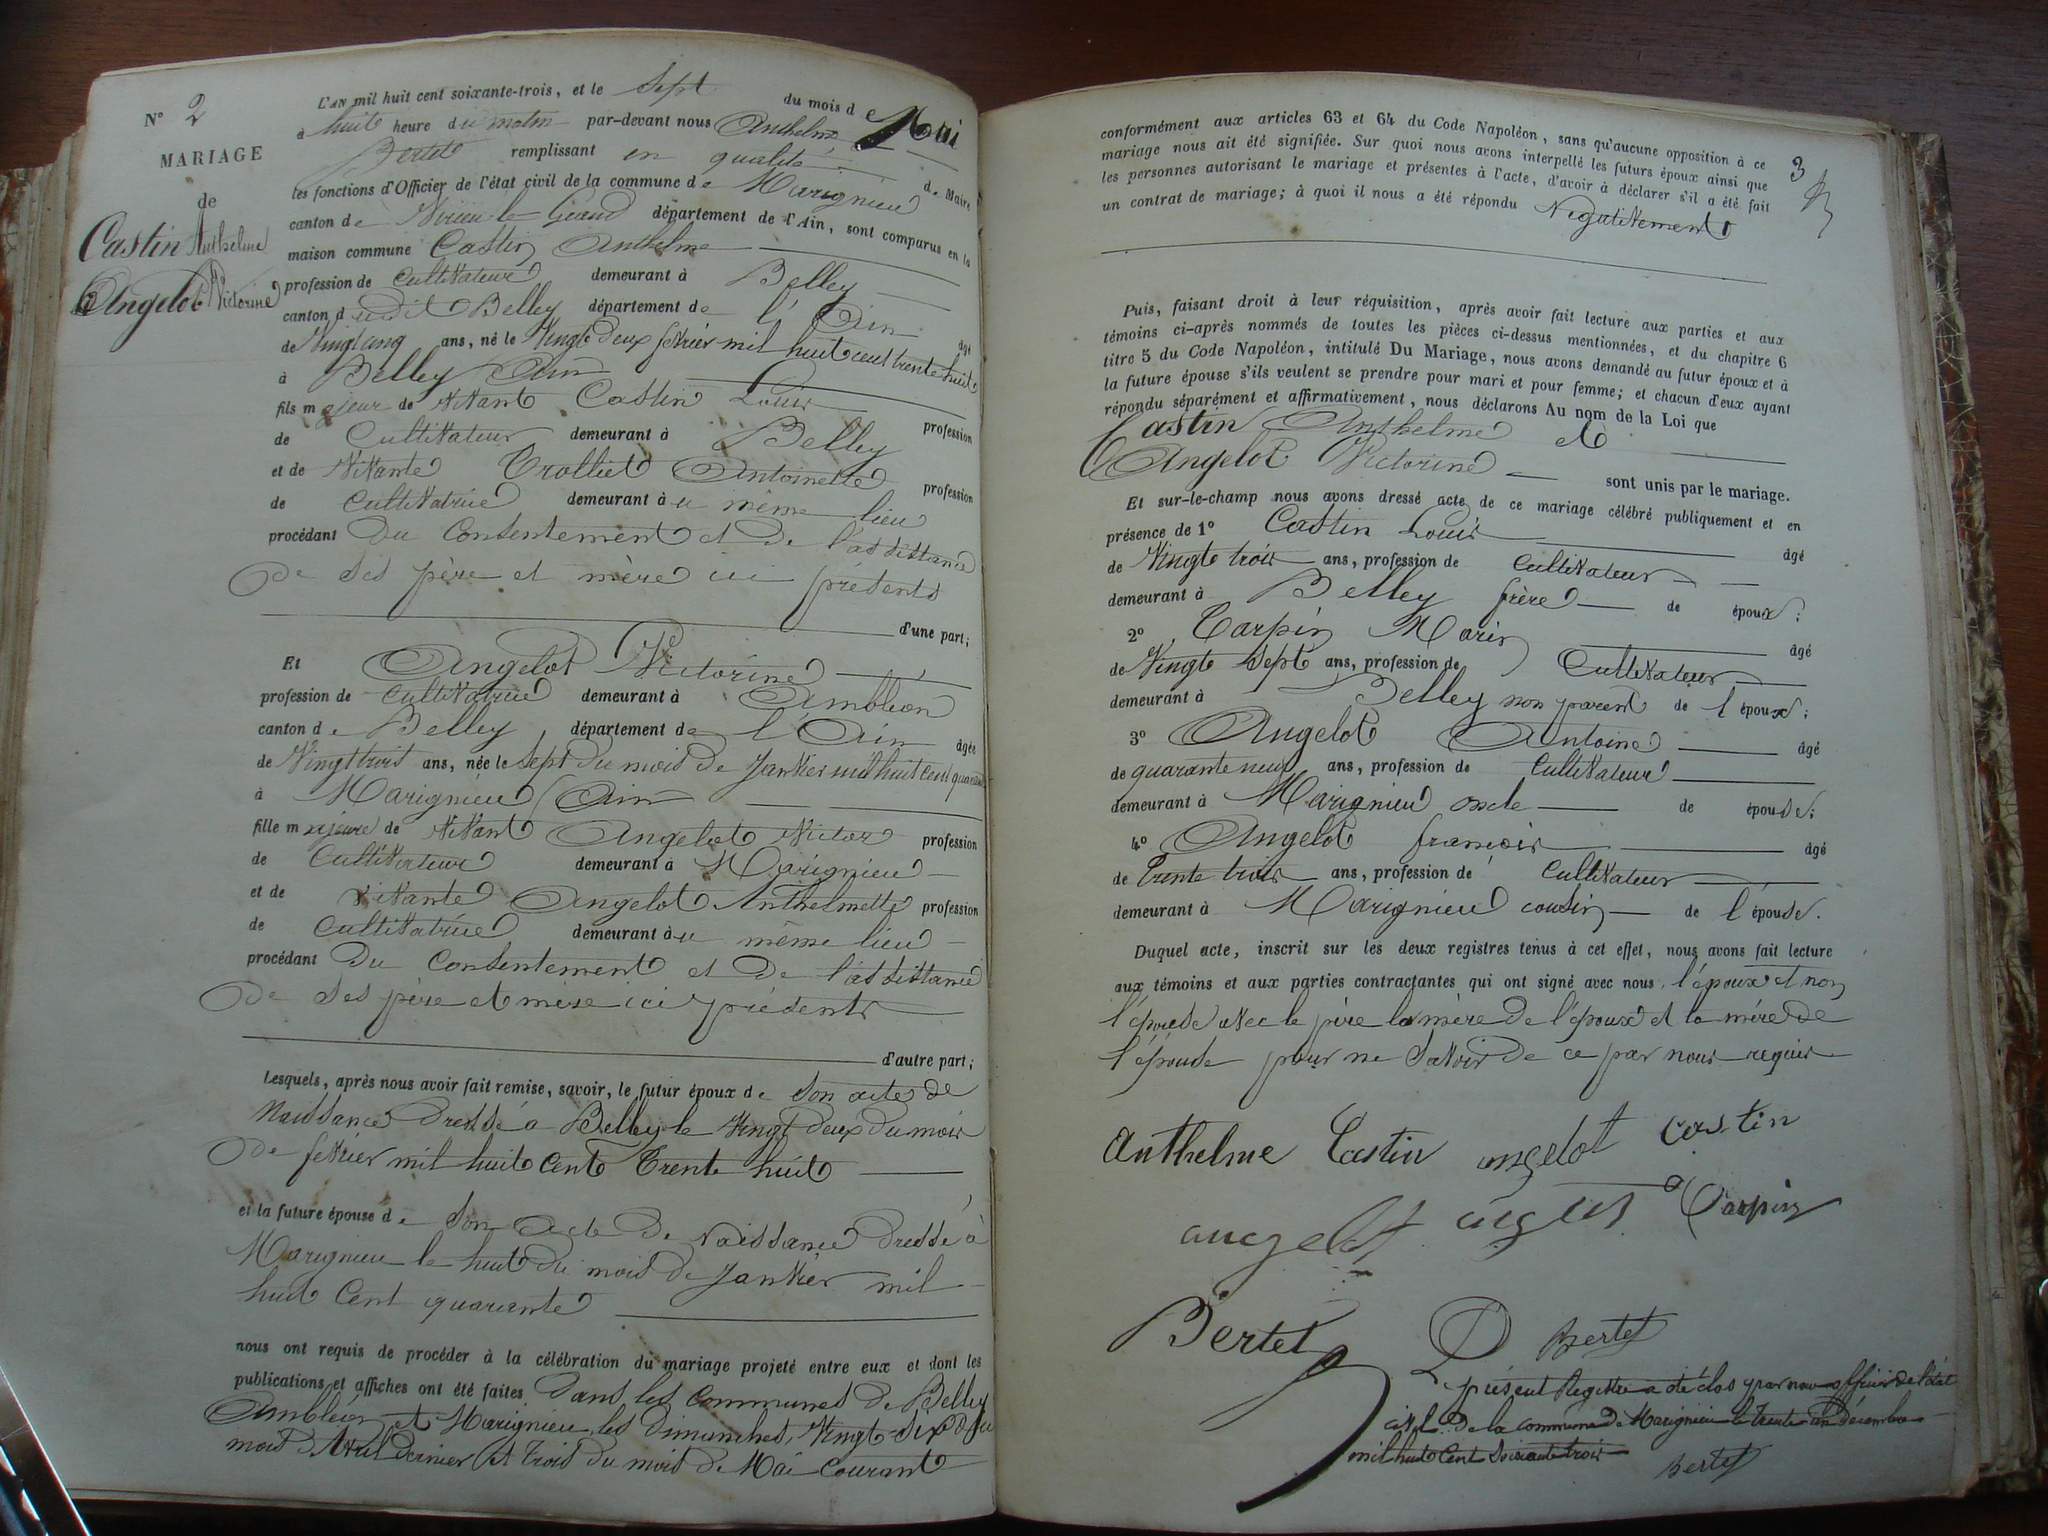 N° 2
MARIAGE
de
Castin Anthelme
à Angelot Victorine
L'AN mil huit cent soixante-trois, et le Sept du mois de Mai
à huit heure du matin par-devant nous Anthelme
Bertet remplissant en qualité de Maire
les fonctions d'Officier de l'état civil de la commune de Marignieu
canton de Virieu le Grand département de l'Ain, sont comparus en la
maison commune Castin Anthelme
profession de cultivateur demeurant à Belley
canton dudit Belley département de l'Ain âgé
de Vingt cinq ans, né le Vingt deux février mil huit cent trente huit
à Belley Ain
fils majeur de vivant Castin Louis profession
de Cultivateur demeurant à Belley
et de Vivante Trolliet Antoinette profession
de Cultivatrice demeurant au même lieu
procédant Du Consentement et de l'assistance
De ses père et mère ici présents
d'une part;
Et Angelot Victorine
profession de Cultivatrice demeurant à Ambléon
canton de Belley département de l'Ain âgée
de Vingt trois ans, née le Sept du mois de Janvier mil huit cent quarante
à Marignieu (Ain
fille majeure de vivant Angelot Victor profession
de Cultivateur demeurant à Marignieu
et de vivante Angelot Anthelmette profession
de Cultivatrice demeurant au même lieu
procédant Du Consentement et de l'assistance
De ses père et mère ici présents
d'autre part;
Lesquels, après nous avoir fait remise, savoir, le futur époux de Son acte de
Naissance Dressé à Belley le Vingt deux du mois
De février mil huit Cent Trente huit
et la future épouse de Son Acte De Naissance Dressé à
Marignieu le huit du mois de Janvier mil
huit Cent quarante
nous ont requis de procéder à la célébration du mariage projeté entre eux et dont les
publications et affiches ont été faites Dans les Communes de Belley
Ambléon et Marignieu les Dimanches, Vingt-Six du
mois d'Avril dernier et trois du mois de Mai Courant
3
conformément aux articles 63 et 64 du Code Napoléon, sans qu'aucune opposition à ce
mariage nous ait été signifiée. Sur quoi nous avons interpellé les futurs époux ainsi que
les personnes autorisant le mariage et présentes à l'acte, d'avoir à déclarer s'il a été fait
un contrat de mariage; à quoi il nous a été répondu Négativement
Puis, faisant droit à leur réquisition, après avoir fait lecture aux parties et aux
témoins ci-après nommés de toutes les pièces ci-dessus mentionnées, et du chapitre 6
titre 5 du Code Napoléon, intitulé Du Mariage, nous avons demandé au futur époux et à
la future épouse s'ils veulent se prendre pour mari et pour femme; et chacun d'eux ayant
répondu séparément et affirmativement, nous déclarons Au nom de la Loi que
Castin Anthelme et
Angelot Victorine sont unis par le mariage.
Et sur-le-champ nous avons dressé acte de ce mariage célébré publiquement et en
présence de 1° Castin Louis âgé
de Vingt trois ans, profession de Cultivateur
demeurant à Belley frère de époux;
2° Carpin Marin âgé
de Vingt Sept ans, profession de Cultivateur
demeurant à Belley non parent de l'époux;
3° Angelot Antoine âgé
de quarante neuf ans, profession de Cultivateur
demeurant à Marignieu oncle de épouse;
4° Angelot francois âgé
de trente trois ans, profession de Cultivateur
demeurant à Marignieu cousin de l'épouse.
Duquel acte, inscrit sur les deux registres tenus à cet effet, nous avons fait lecture
aux témoins et aux parties contractantes qui ont signé avec nous, l'époux et non
l'épouse avec le père la mère de l'époux et la mère de
l'épouse pour ne savoir de ce par nous requis
Anthelme Castin angelot castin
angelot Carpin
Bertet Bertet
Le présent Registre a été clos par nous officier de l'état
civil de la commune de Marignieu le trente un décembre
mil huit Cent Soixante trois
Bertet